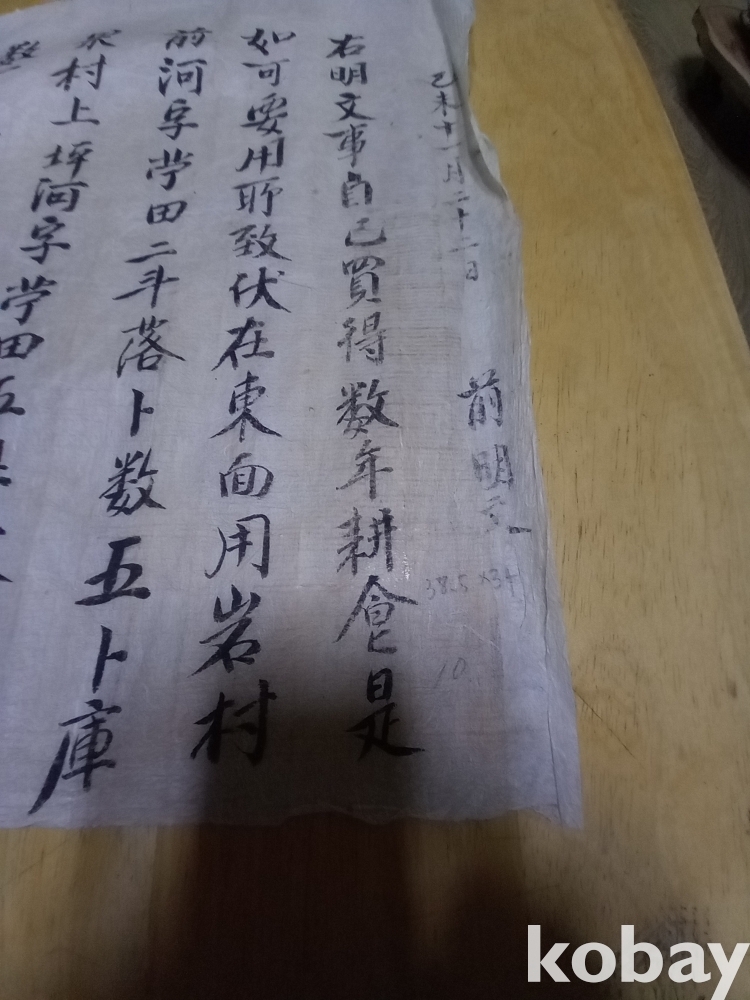 己未十一月二十二日
前明文
38.5 x34
10
右明文事自己買得数年耕食是
如可要用所致伏在東面用岩村
前河字苧田二斗落卜数五卜庫
村上坪河字苧田五
kobay